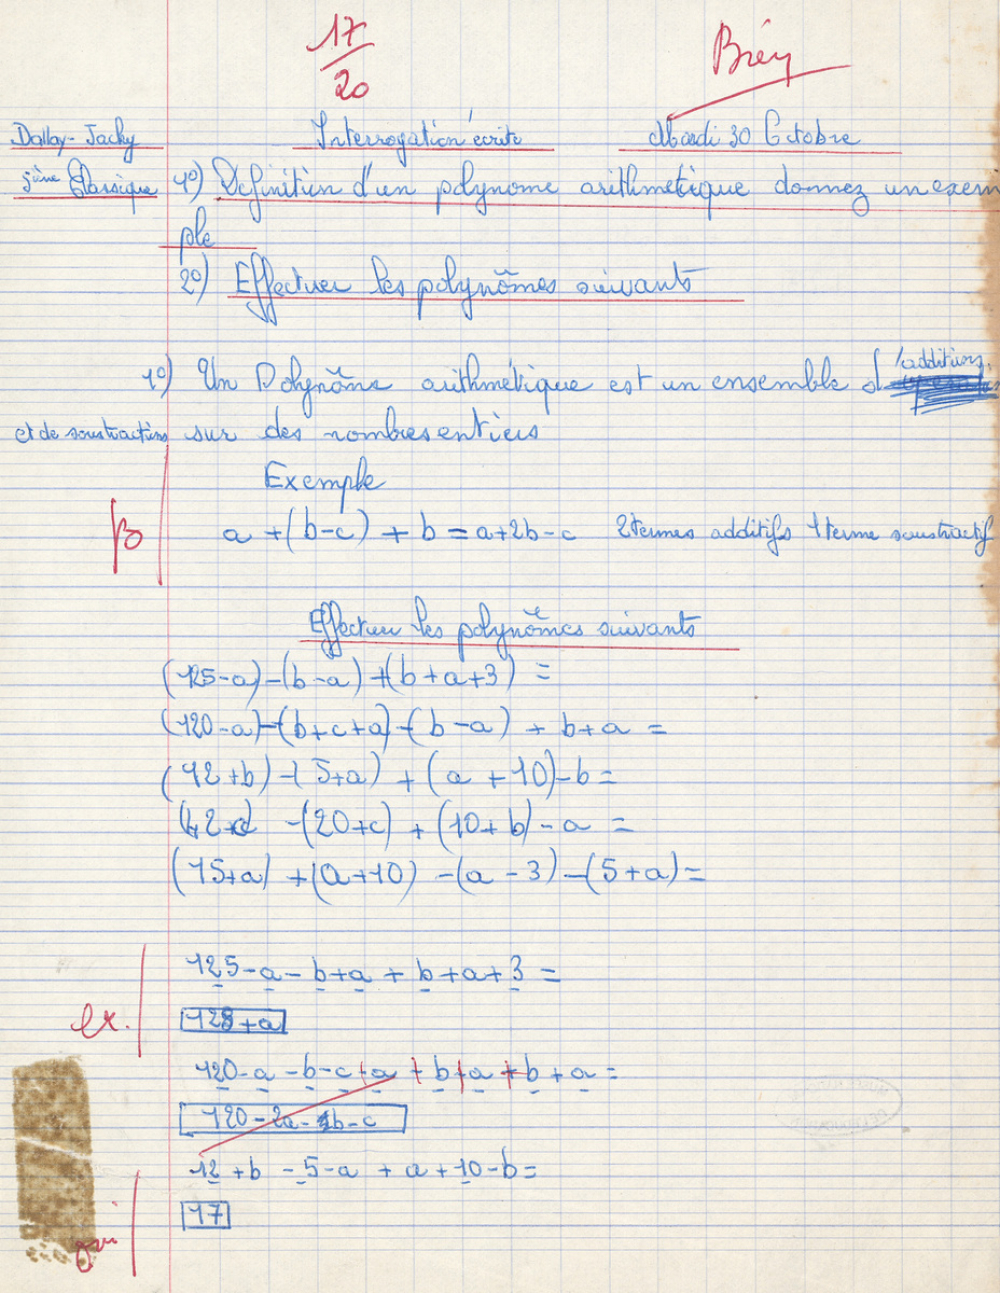 17
20
Bien
Dallay-Jacky
Interrogation écrite
Mardi 30 Octobre
5ième Classique
1º) Definition d'un polynome arithmetique donnez un exem
ple
2º) Effectuer les polynômes suivants
1º) Un Polynôme arithmétique est un ensemble d'additions
et de soustractions sur des nombres entiers
Exemple
a + (b-c) + b = a+2b-c 2 termes additifs 1 terme soustractif
B
Effectuer les polynômes suivants
(125-a)-(b-a)+(b+a+3) =
(120-a)-(b+c+a)-(b-a) + b+a =
(12+b)-(5+a) + (a+10)-b =
-(20+c) + (10+b)-a =
(15+a) + (a+10) -(a-3)-(5+a) =
125-a-b+a+b+a+3 =
128+a
ex.
120-a-b-c+a+b+a+b+a =
120-2a-b-c
12+b-5-a+a+10-b =
17
oui